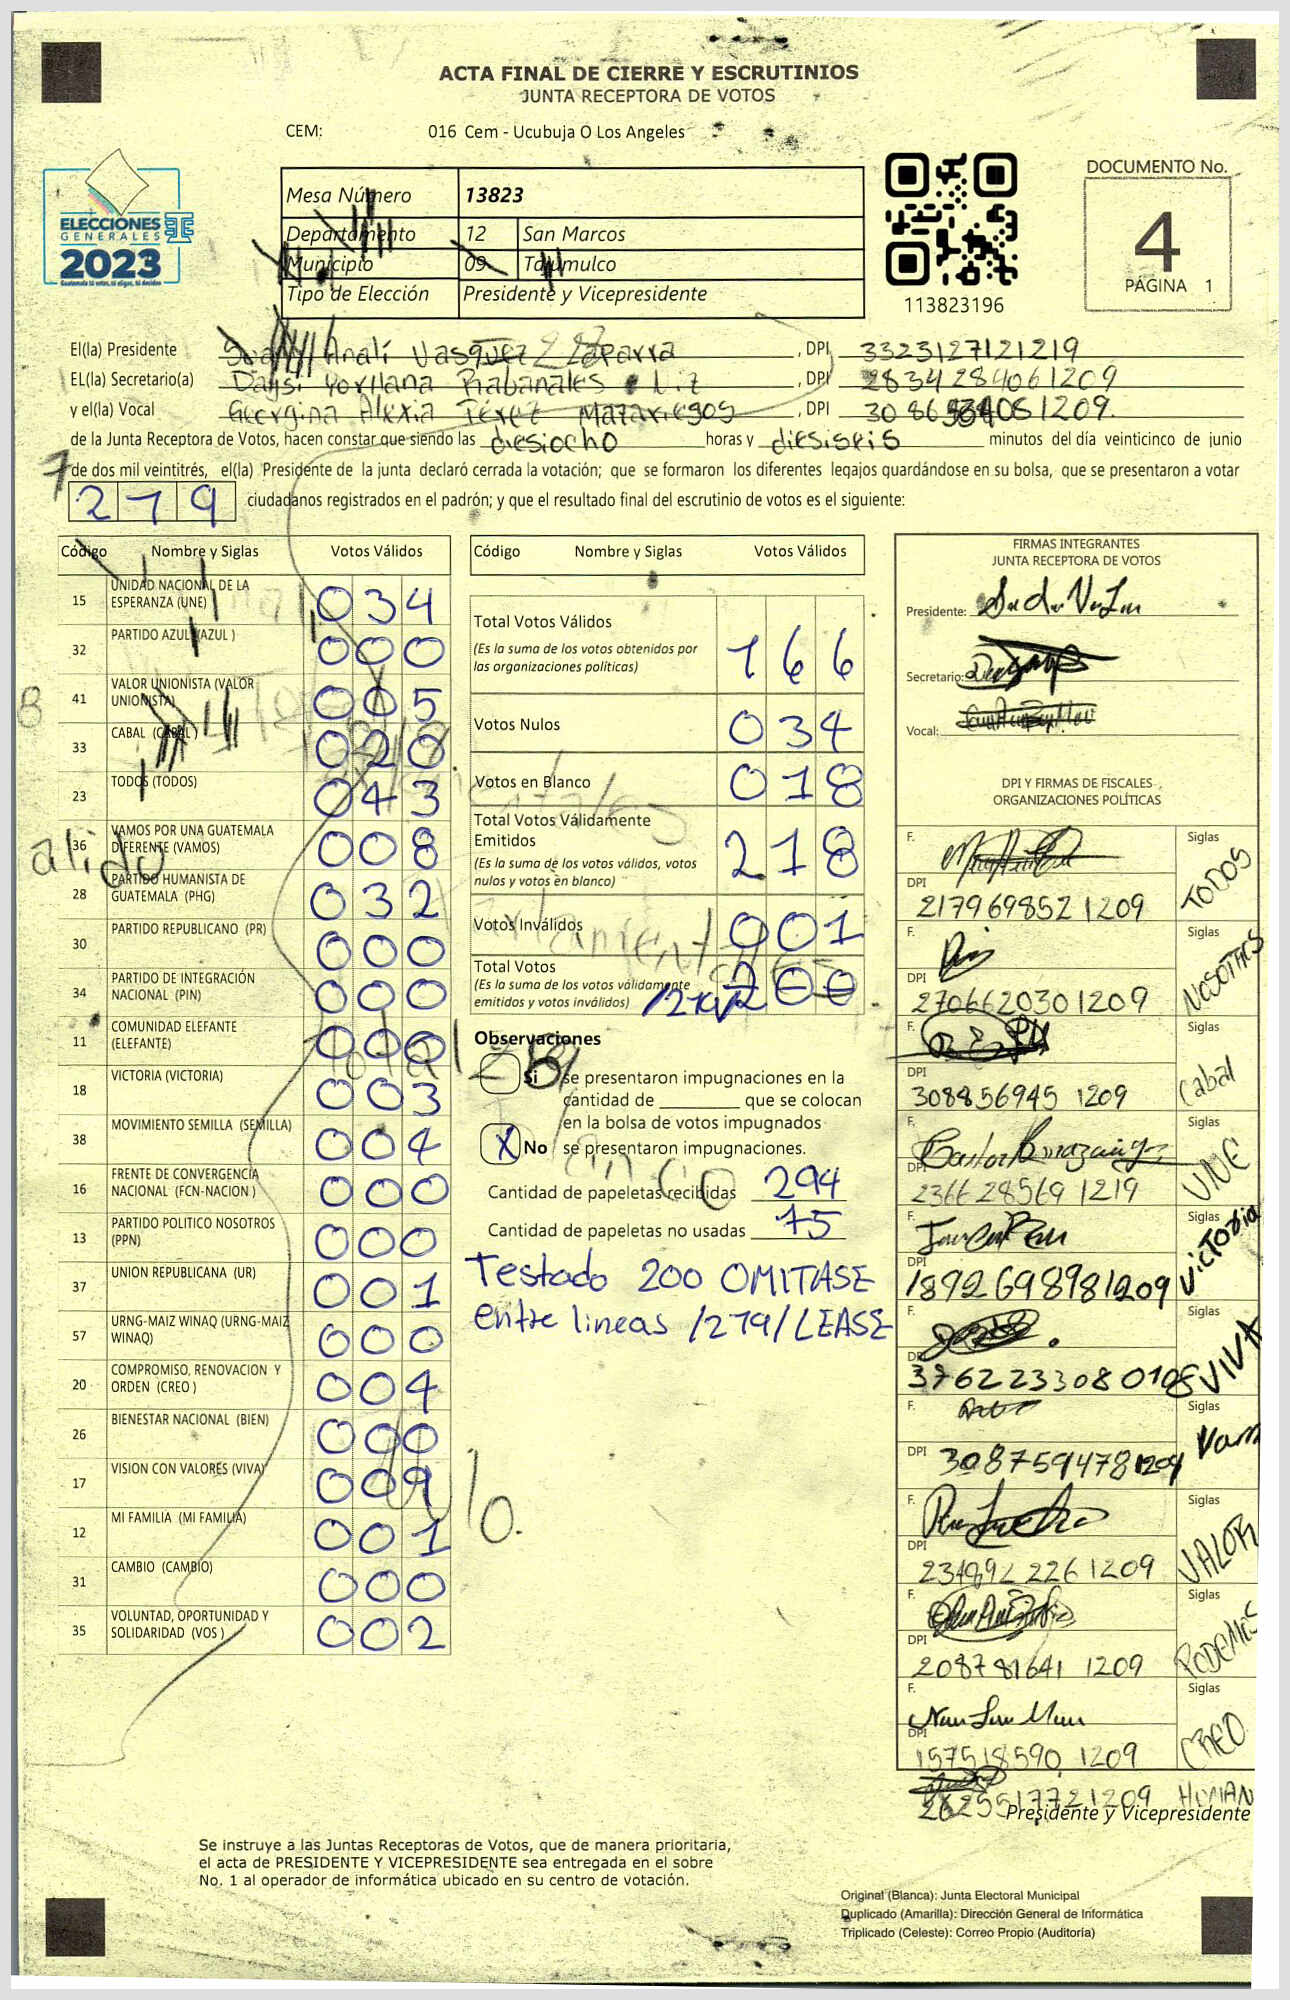 ACTA FINAL DE CIERRE Y ESCRUTINIOS
JUNTA RECEPTORA DE VOTOS
CEM: 016 Cem - Ucubuja O Los Angeles
ELECCIONES
GENERALES
2023
Guatemala tú votas, tú eliges, tú decides
Mesa Número 13823
Departamento 12 San Marcos
Municipio 09 Tajumulco
Tipo de Elección Presidente y Vicepresidente
113823196
DOCUMENTO No.
4
PAGINA 1
El(la) Presidente Analí Vasquez , DPI 3323127121219
EL(la) Secretario(a) Daysi Yorllana Rabanales , DPI 2834284061209
y el(la) Vocal Georgina Alexia Pérez Matariegos , DPI
de la Junta Receptora de Votos, hacen constar que siendo las diesiocho horas y diesiseis minutos del día veinticinco de junio
de dos mil veintitrés, el(la) Presidente de la junta declaró cerrada la votación; que se formaron los diferentes legajos quardándose en su bolsa, que se presentaron a votar
279 ciudadanos registrados en el padrón; y que el resultado final del escrutinio de votos es el siguiente:
Código Nombre y Siglas Votos Válidos
15 UNIDAD NACIONAL DE LA ESPERANZA (UNE) 034
32 PARTIDO AZUL (AZUL ) 000
41 VALOR UNIONISTA (VALOR UNIONISTA) 005
33 CABAL (CABAL ) 020
23 TODOS (TODOS) 043
36 VAMOS POR UNA GUATEMALA DIFERENTE (VAMOS) 008
28 PARTIDO HUMANISTA DE GUATEMALA (PHG) 032
30 PARTIDO REPUBLICANO (PR) 000
34 PARTIDO DE INTEGRACIÓN NACIONAL (PIN) 000
11 COMUNIDAD ELEFANTE (ELEFANTE) 000
18 VICTORIA (VICTORIA) 003
38 MOVIMIENTO SEMILLA (SEMILLA) 004
16 FRENTE DE CONVERGENCIA NACIONAL (FCN-NACION ) 000
13 PARTIDO POLITICO NOSOTROS (PPN) 000
37 UNION REPUBLICANA (UR) 001
57 URNG-MAIZ WINAQ (URNG-MAIZ WINAQ) 000
20 COMPROMISO, RENOVACION Y ORDEN (CREO ) 004
26 BIENESTAR NACIONAL (BIEN) 000
17 VISION CON VALORES (VIVA) 009
12 MI FAMILIA (MI FAMILIA) 001
31 CAMBIO (CAMBIO) 000
35 VOLUNTAD, OPORTUNIDAD Y SOLIDARIDAD (VOS ) 002
Código Nombre y Siglas Votos Válidos
Total Votos Válidos 166
(Es la suma de los votos obtenidos por
las organizaciones políticas)
Votos Nulos 034
Votos en Blanco 018
Total Votos Válidamente
Emitidos 218
(Es la suma de los votos válidos, votos
nulos y votos en blanco)
Votos Inválidos 001
Total Votos
(Es la suma de los votos válidamente
emitidos y votos inválidos) 200
Observaciones
Si se presentaron impugnaciones en la
cantidad de ________ que se colocan
en la bolsa de votos impugnados
X No se presentaron impugnaciones.
Cantidad de papeletas recibidas 294
Cantidad de papeletas no usadas 75
Testado 200 OMITASE
entre lineas /279/ LEASE
FIRMAS INTEGRANTES
JUNTA RECEPTORA DE VOTOS
Presidente:
Secretario:
Vocal:
DPI Y FIRMAS DE FISCALES
ORGANIZACIONES POLÍTICAS
F. Siglas TODOS
DPI 2179698521209
F. Siglas NOSOTROS
DPI 2706620301209
F. Siglas Cabal
DPI 308856945 1209
F. Siglas UNE
DPI 2366 28569 1219
F. Siglas VicToria
DPI 1892698981209
F. VIVA
DPI 3762233080108
F. Siglas Vam
DPI 3087594781209
F. Siglas VALOR
DPI 234892 226 1209
F. Siglas PODEMOS
DPI 208781641 1209
F. Siglas CREO
DPI 157518590 1209
2625517721209 HUMAN
Presidente y Vicepresidente
Se instruye a las Juntas Receptoras de Votos, que de manera prioritaria,
el acta de PRESIDENTE Y VICEPRESIDENTE sea entregada en el sobre
No. 1 al operador de informática ubicado en su centro de votación.
Original (Blanca): Junta Electoral Municipal
Duplicado (Amarilla): Dirección General de Informática
Triplicado (Celeste): Correo Propio (Auditoría)